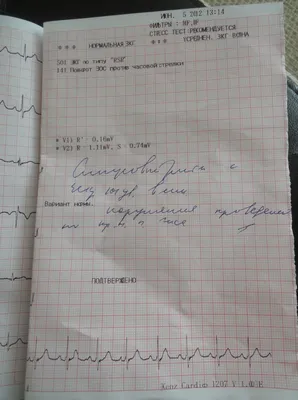 ИЮН. 5 2012 13:14
ФИЛЬТРЫ : BF,HF
СТЕСС ТЕСТ:РЕКОМЕНДУЕТСЯ
*** НОРМАЛЬНАЯ ЭКГ *** УСРЕДНЕН. ЭКГ ВОЛНА
501 ЭКГ по типу "RSR'"
141 Поворот ЭОС против часовой стрелки
* V1) R' - 0.16mV
* V2) R - 1.11mV, S - 0.74mV
Синусовый ритм с
Вариант нормы.
нарушения проведения
ПОДТВЕРЖДЕНО
Kenz Cardio 1207 V 1.